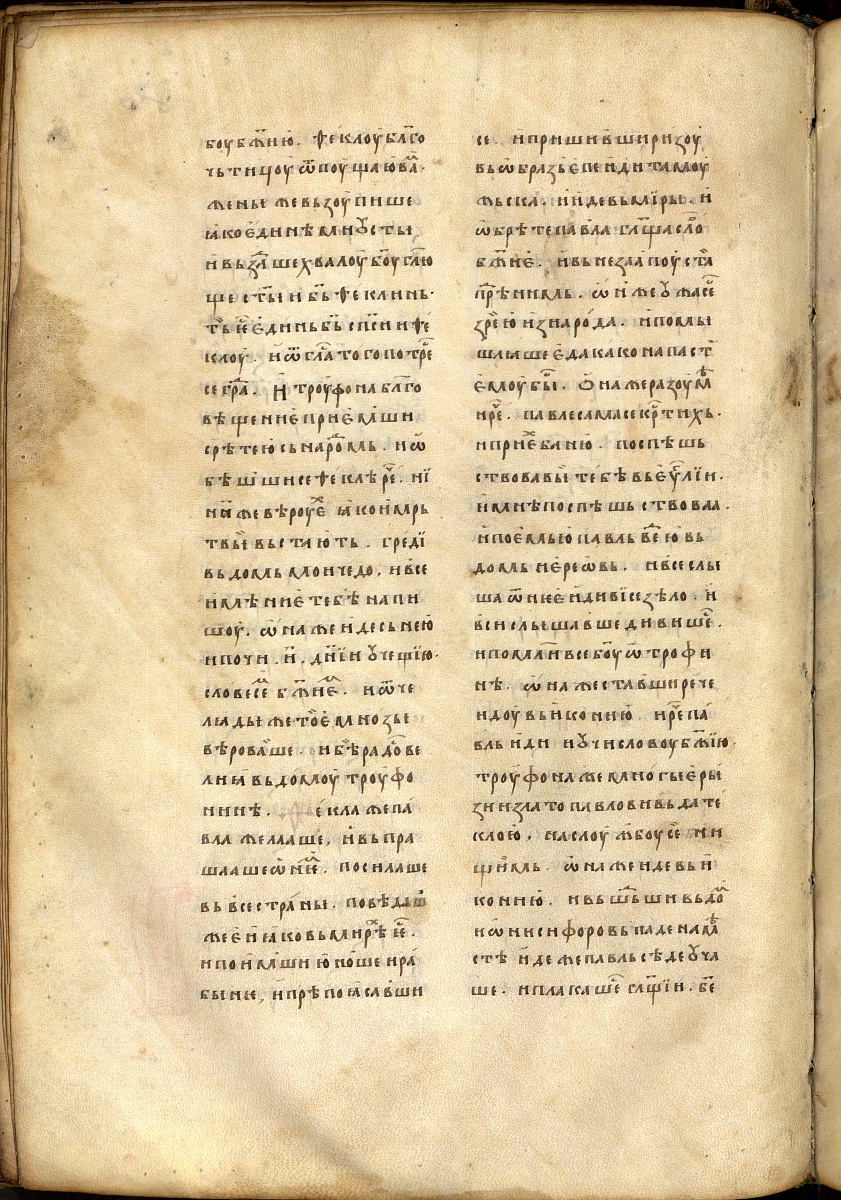 боу бж҃ию. Ѳеклоу бл҃го
чьтицоу ѿпоущаю ва҃.
жень же вьзоупише
ꙗко единѣми оусты
и вьзда҃ше хвалоу боу҃ гл҃ю
ще сты и бь҃ ѳеклинь.
ть҃ ѥс҃ єдинь бь҃ сп҃си и ѳе
клоу. и ѿ гла҃ того потре҃
се гра҃. И троуфона бл҃го
вѣщение приемши
срѣте ю сь наро҃мь. и ѡ
бѣшьши се ѳеклѣ рч҃е. нї
нꙗ же вѣроую҃ ꙗко и мрь
твы вьстають. греди
вь домь мои чедо. и все
имѣние тебѣ напи
шоу. ѡна же иде сь нею
и почи. и҃. дн҃їи оучещїю.
словесе҃ бж҃ие. и ѿче
люди же тое҃ мнозы
вѣрова҃ше. и бѣ҃ радо҃ ве
лиꙗ вь домоу троуфо
нинѣ. Ѳекла же па
вла желааше, и выпра
шлаше ѡ нѥ҃м. посилаше
вь все страны. повѣдаш҃
же еи ꙗко вь мирѣх҃ ѥс҃.
и поимши юноше и ра
быне, и прѣпоꙗсавши
се. и пришивши ризоу
вь ѡбразь епендита моу
жьска. и иде вь мїры. и
ѡбрѣте павла гл҃ща сло҃
бж҃иѥ. и вьнезаапоу ста҃
пр҃ѣ нимь. ѡн же оужасе҃
зре҃ ю и народа. и помы
шлꙗше еда како напаст҃
емоу бы҃. ѡна же разоум҃ѣ
и рч҃е. павле сама се кр҃тихь.
и приех҃ баню. поспѣшь
ствовавы тебѣ вь еуг҃лїи.
и мнѣ поспѣшьствова.
и поемь ю павль ве҃ ю вь
домь иереѡвь. и все слы
ша ѿ нѥе и дививїсе зѣло. и
вси слышавше дивишес҃.
и помл҃и все боу҃ ѡ трофи
нѣ. ѡна же ставши рече
идоу вь иконию. и рч҃е па
вль иди и оучи слово бж҃їю.
троуфона же многые ри
зи и злато павлови вьда те
клою. на слоужбоу се҃ ни
щимь. ѡна же иде вь и
конию. и вьшь҃ши вь до҃м
и ѡнисифоровь паде на м҃ѣ
стѣ идеже павль сѣде оуча
ше. и плакаше҃ гл҃щїи. бе҃